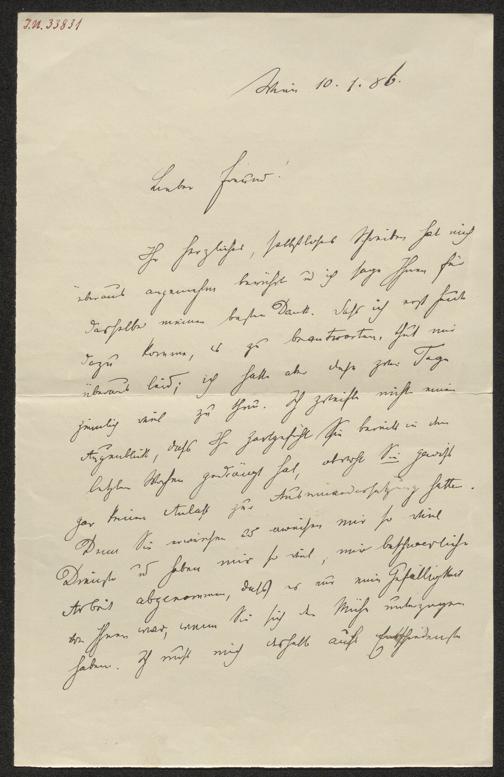 J.N. 33831
Wien 10. 1. 86.
Lieber Freund!
Ihr herzliches, selbstloses Schreiben hat mich
überaus angenehm berührt u ich sage Ihnen für
dasselbe meinen besten Dank. Daß ich erst heute
dazu komme, es zu beantworten, thut mir
überaus leid; ich hatte aber diese zwei Tage
ziemlich viel zu thun. Ich zweifle nicht einen
Augenblick, daß Ihr Zartgefühl Sie bereits in den
letzten Wochen gedrängt hat, obwohl Sie gewiß
gar keinen Anlaß zur Auseinandersetzung hatten.
Denn Sie erwiesen mir so viel
Dienste u haben mir so viel, mir beschwerliche
Arbeit abgenommen, daß es nur eine Gefälligkeit
von Ihnen war, wenn Sie sich der Mühe unterzogen
haben. Ich muß mich deshalb aufs Entschiedenste